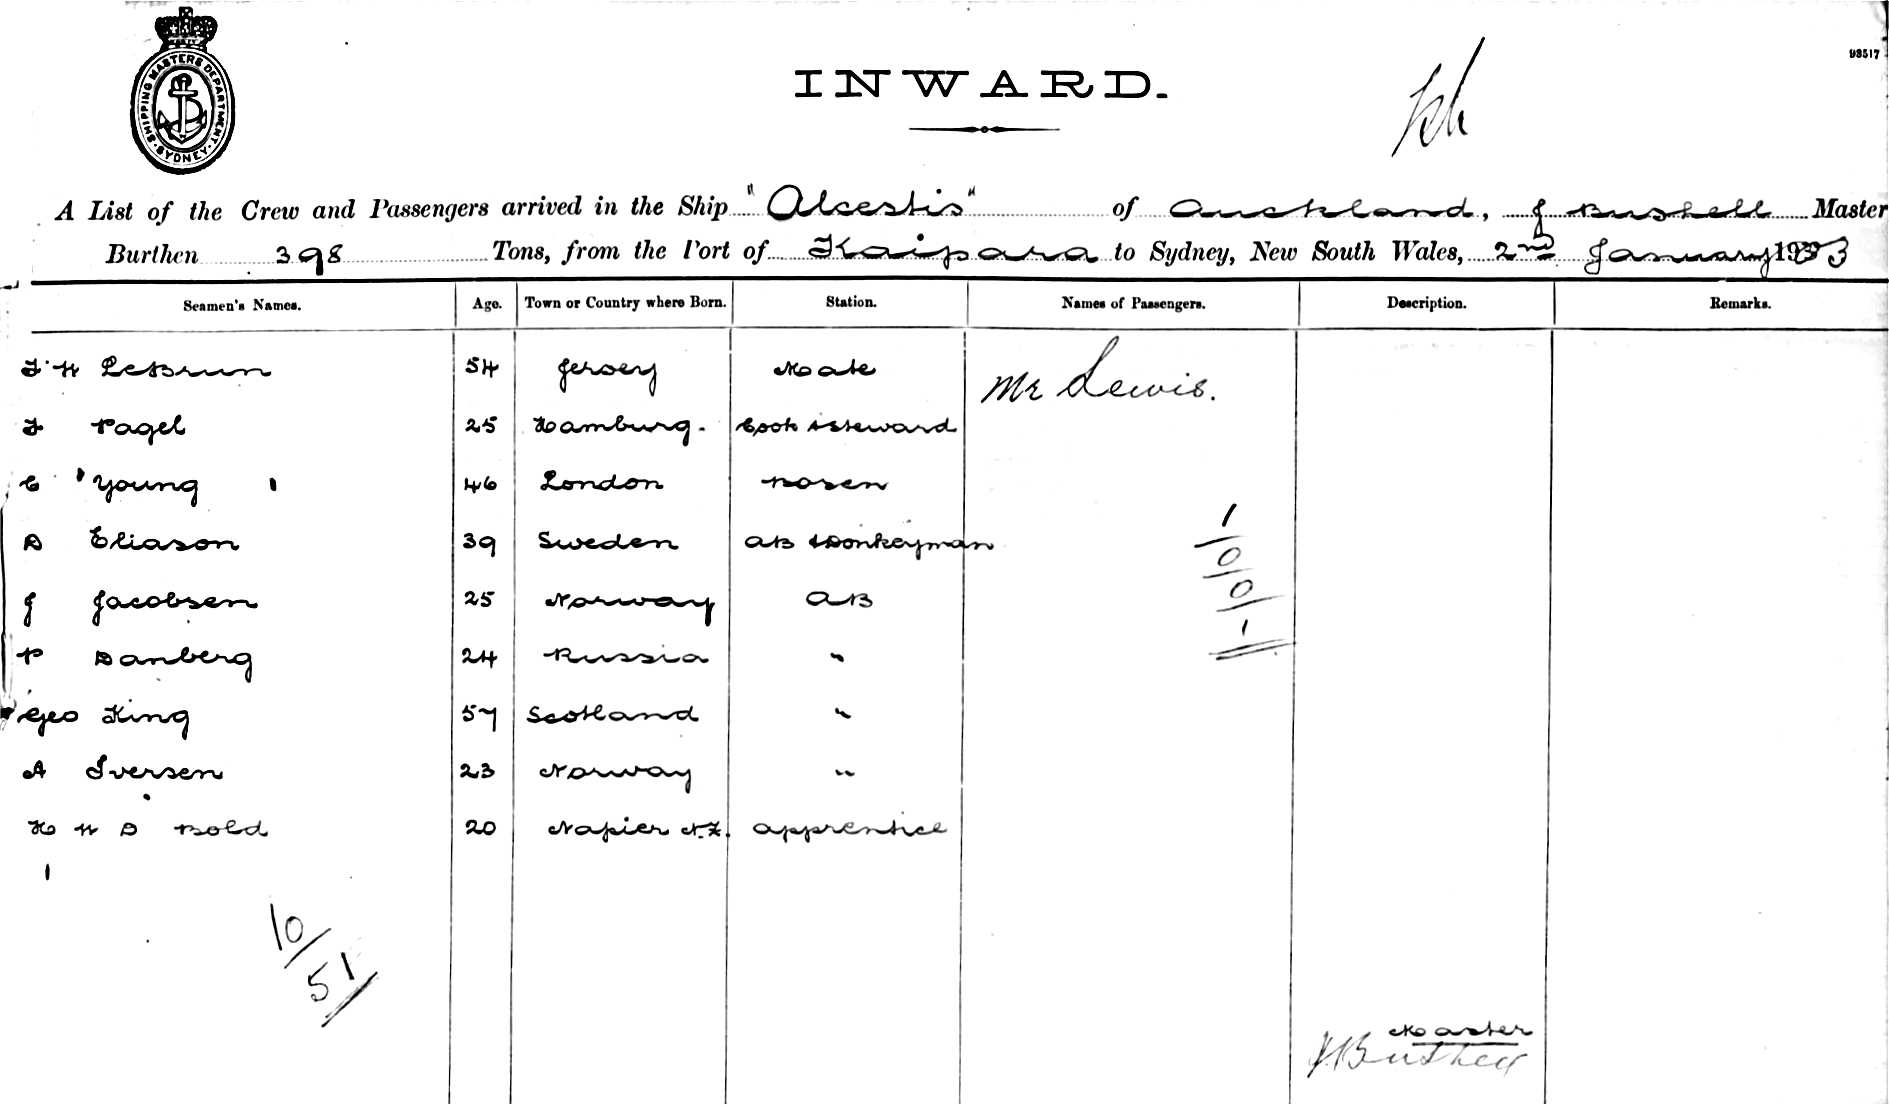 SHIPPING MASTERS DEPARTMENT
SYDNEY
93517
INWARD.
A List of the Crew and Passengers arrived in the Ship "Alcestis" of Auckland, J Bushell Master
Burthen 398 Tons, from the Port of Kaipara to Sydney, New South Wales, 2nd January 1903
Seamen's Names. Age. Town or Country where Born. Station. Names of Passengers. Description. Remarks.
F W LeBrun 54 Jersey Mate Mr Lewis.
F Pagel 25 Hamburg. Cook & Steward
C Young 46 London Bosen
D Eliason 39 Sweden AB & Donkeyman
J Jacobsen 25 Norway AB
P Danberg 24 Russia "
Geo King 57 Scotland "
A Iversen 23 Norway "
H W D Bold 20 Napier N.Z. apprentice
1/0/0/1
10/51
Master
J Bushell